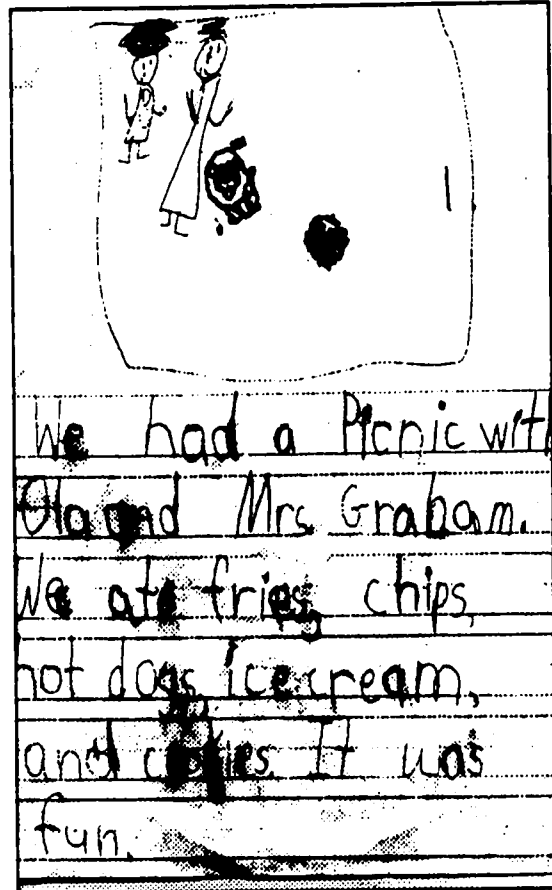 We had a Picnic with
Ola and Mrs. Graham.
We ate fries, chips,
hot dogs, ice cream,
and It was
fun.